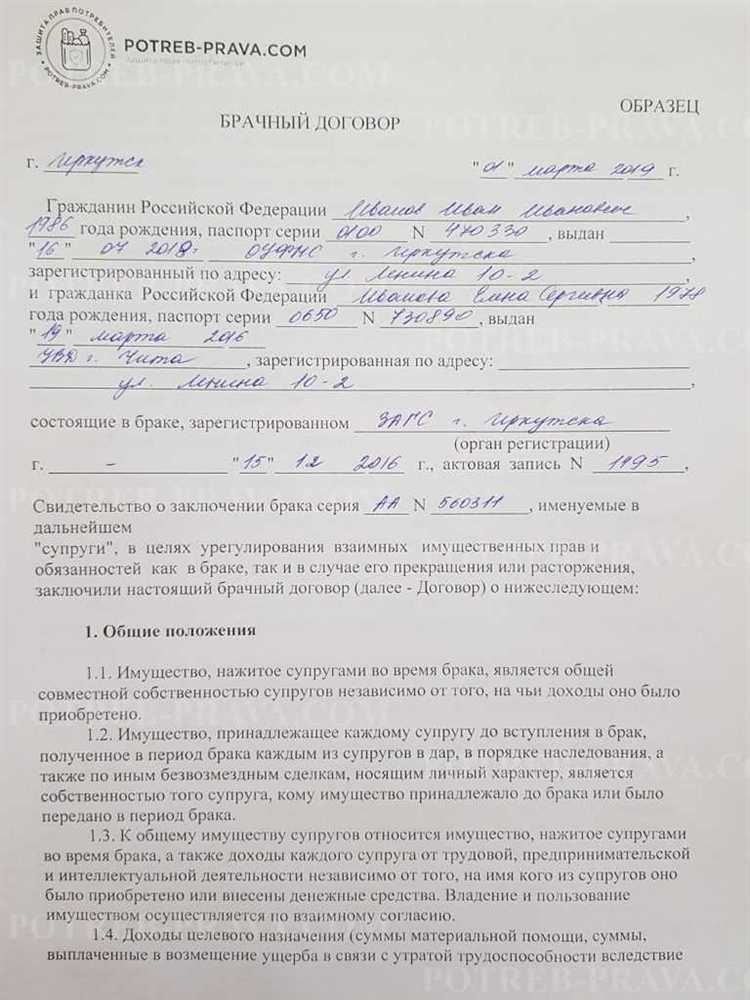 ЗАЩИТА ПРАВ ПОТРЕБИТЕЛЕЙ
POTREB-PRAVA.COM
POTREB-PRAVA.COM
ОБРАЗЕЦ
БРАЧНЫЙ ДОГОВОР
г. Иркутск "01" марта 2019 г.
Гражданин Российской Федерации Иванов Иван Иванович,
1986 года рождения, паспорт серии 0100 N 470330, выдан
"16" 07 2018г ОУФМС г. Иркутска,
зарегистрированный по адресу: ул Ленина 10-2,
и гражданка Российской Федерации Иванова Елена Сергеевна 1978
года рождения, паспорт серии 0650 N 730890, выдан
"19" марта 2016
УВД г. Чита, зарегистрированная по адресу:
ул. Ленина 10-2,
состоящие в браке, зарегистрированном ЗАГС г. Иркутска
(орган регистрации)
г. - "15" 12 2016 г., актовая запись N 1195,
Свидетельство о заключении брака серия АА N 560311, именуемые в
дальнейшем
"супруги", в целях урегулирования взаимных имущественных прав и
обязанностей как в браке, так и в случае его прекращения или расторжения,
заключили настоящий брачный договор (далее - Договор) о нижеследующем:
1. Общие положения
1.1. Имущество, нажитое супругами во время брака, является общей
совместной собственностью супругов независимо от того, на чьи доходы оно было
приобретено.
1.2. Имущество, принадлежащее каждому супругу до вступления в брак,
полученное в период брака каждым из супругов в дар, в порядке наследования, а
также по иным безвозмездным сделкам, носящим личный характер, является
собственностью того супруга, кому имущество принадлежало до брака или было
передано в период брака.
1.3. К общему имуществу супругов относится имущество, нажитое супругами
во время брака, а также доходы каждого супруга от трудовой, предпринимательской
и интеллектуальной деятельности независимо от того, на имя кого из супругов оно
было приобретено или внесены денежные средства. Владение и пользование
имуществом осуществляется по взаимному согласию.
1.4. Доходы целевого назначения (суммы материальной помощи, суммы,
выплаченные в возмещение ущерба в связи с утратой трудоспособности вследствие